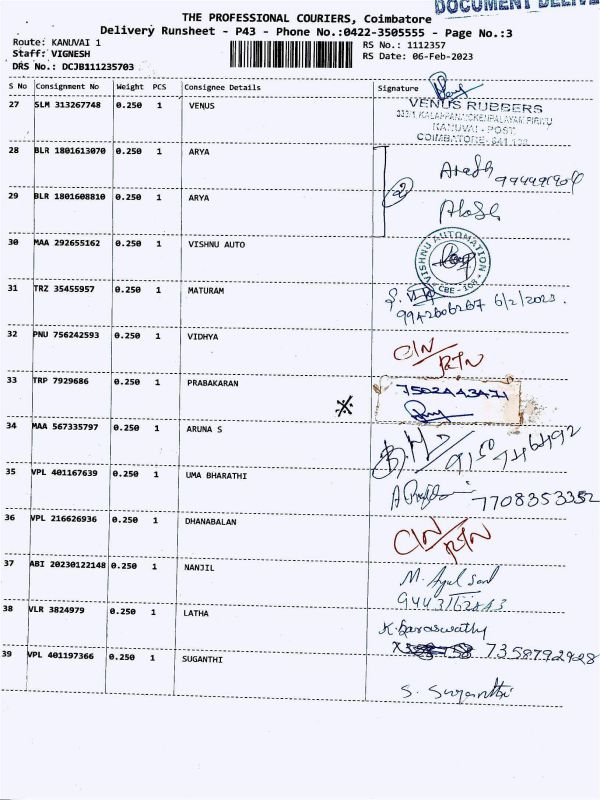 DOCUMENT DELIVE
THE PROFESSIONAL COURIERS, Coimbatore
Delivery Runsheet - P43 - Phone No.:0422-3505555 - Page No.:3
Route: KANUVAI 1 RS No.: 1112357
Staff: VIGNESH RS Date: 06-Feb-2023
DRS No.: DCJB111235703
S No Consignment No Weight PCS Consignee Details Signature
27 SLM 313267748 0.250 1 VENUS
VENUS RUBBERS
KANUVAI - POST
28 BLR 1801613070 0.250 1 ARYA
2
29 BLR 1801608810 0.250 1 ARYA
30 MAA 292655162 0.250 1 VISHNU AUTO
VISHNU AUTOMATION
CBE - 108
31 TRZ 35455957 0.250 1 MATURAM
9942606267 6/2/2023.
32 PNU 756242593 0.250 1 VIDHYA
CIN/RTN
33 TRP 7929686 0.250 1 PRABAKARAN
34 MAA 567335797 0.250 1 ARUNA S
35 VPL 401167639 0.250 1 UMA BHARATHI
7708353352
36 VPL 216626936 0.250 1 DHANABALAN
CIN/RTN
37 ABI 20230122148 0.250 1 NANJIL
38 VLR 3824979 0.250 1 LATHA
K. Saraswathy
7358792928
39 VPL 401197366 0.250 1 SUGANTHI
S. Suganthi